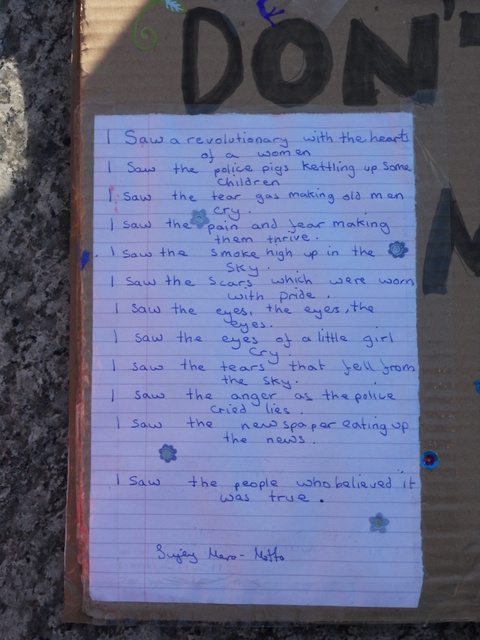 DON'T
I Saw a revolutionary with the hearts
of a women
I Saw the police pigs kettling up some
children
I saw the tear gas making old men
cry.
I saw the pain and fear making
them thrive.
I saw the smoke high up in the
sky.
I saw the scars which were worn
with pride.
I saw the eyes, the eyes, the
eyes.
I saw the eyes of a little girl
cry.
I saw the tears that fell from
the sky.
I saw the anger as the police
cried lies.
I saw the newspaper eating up
the news.
I saw the people who believed it
was true.